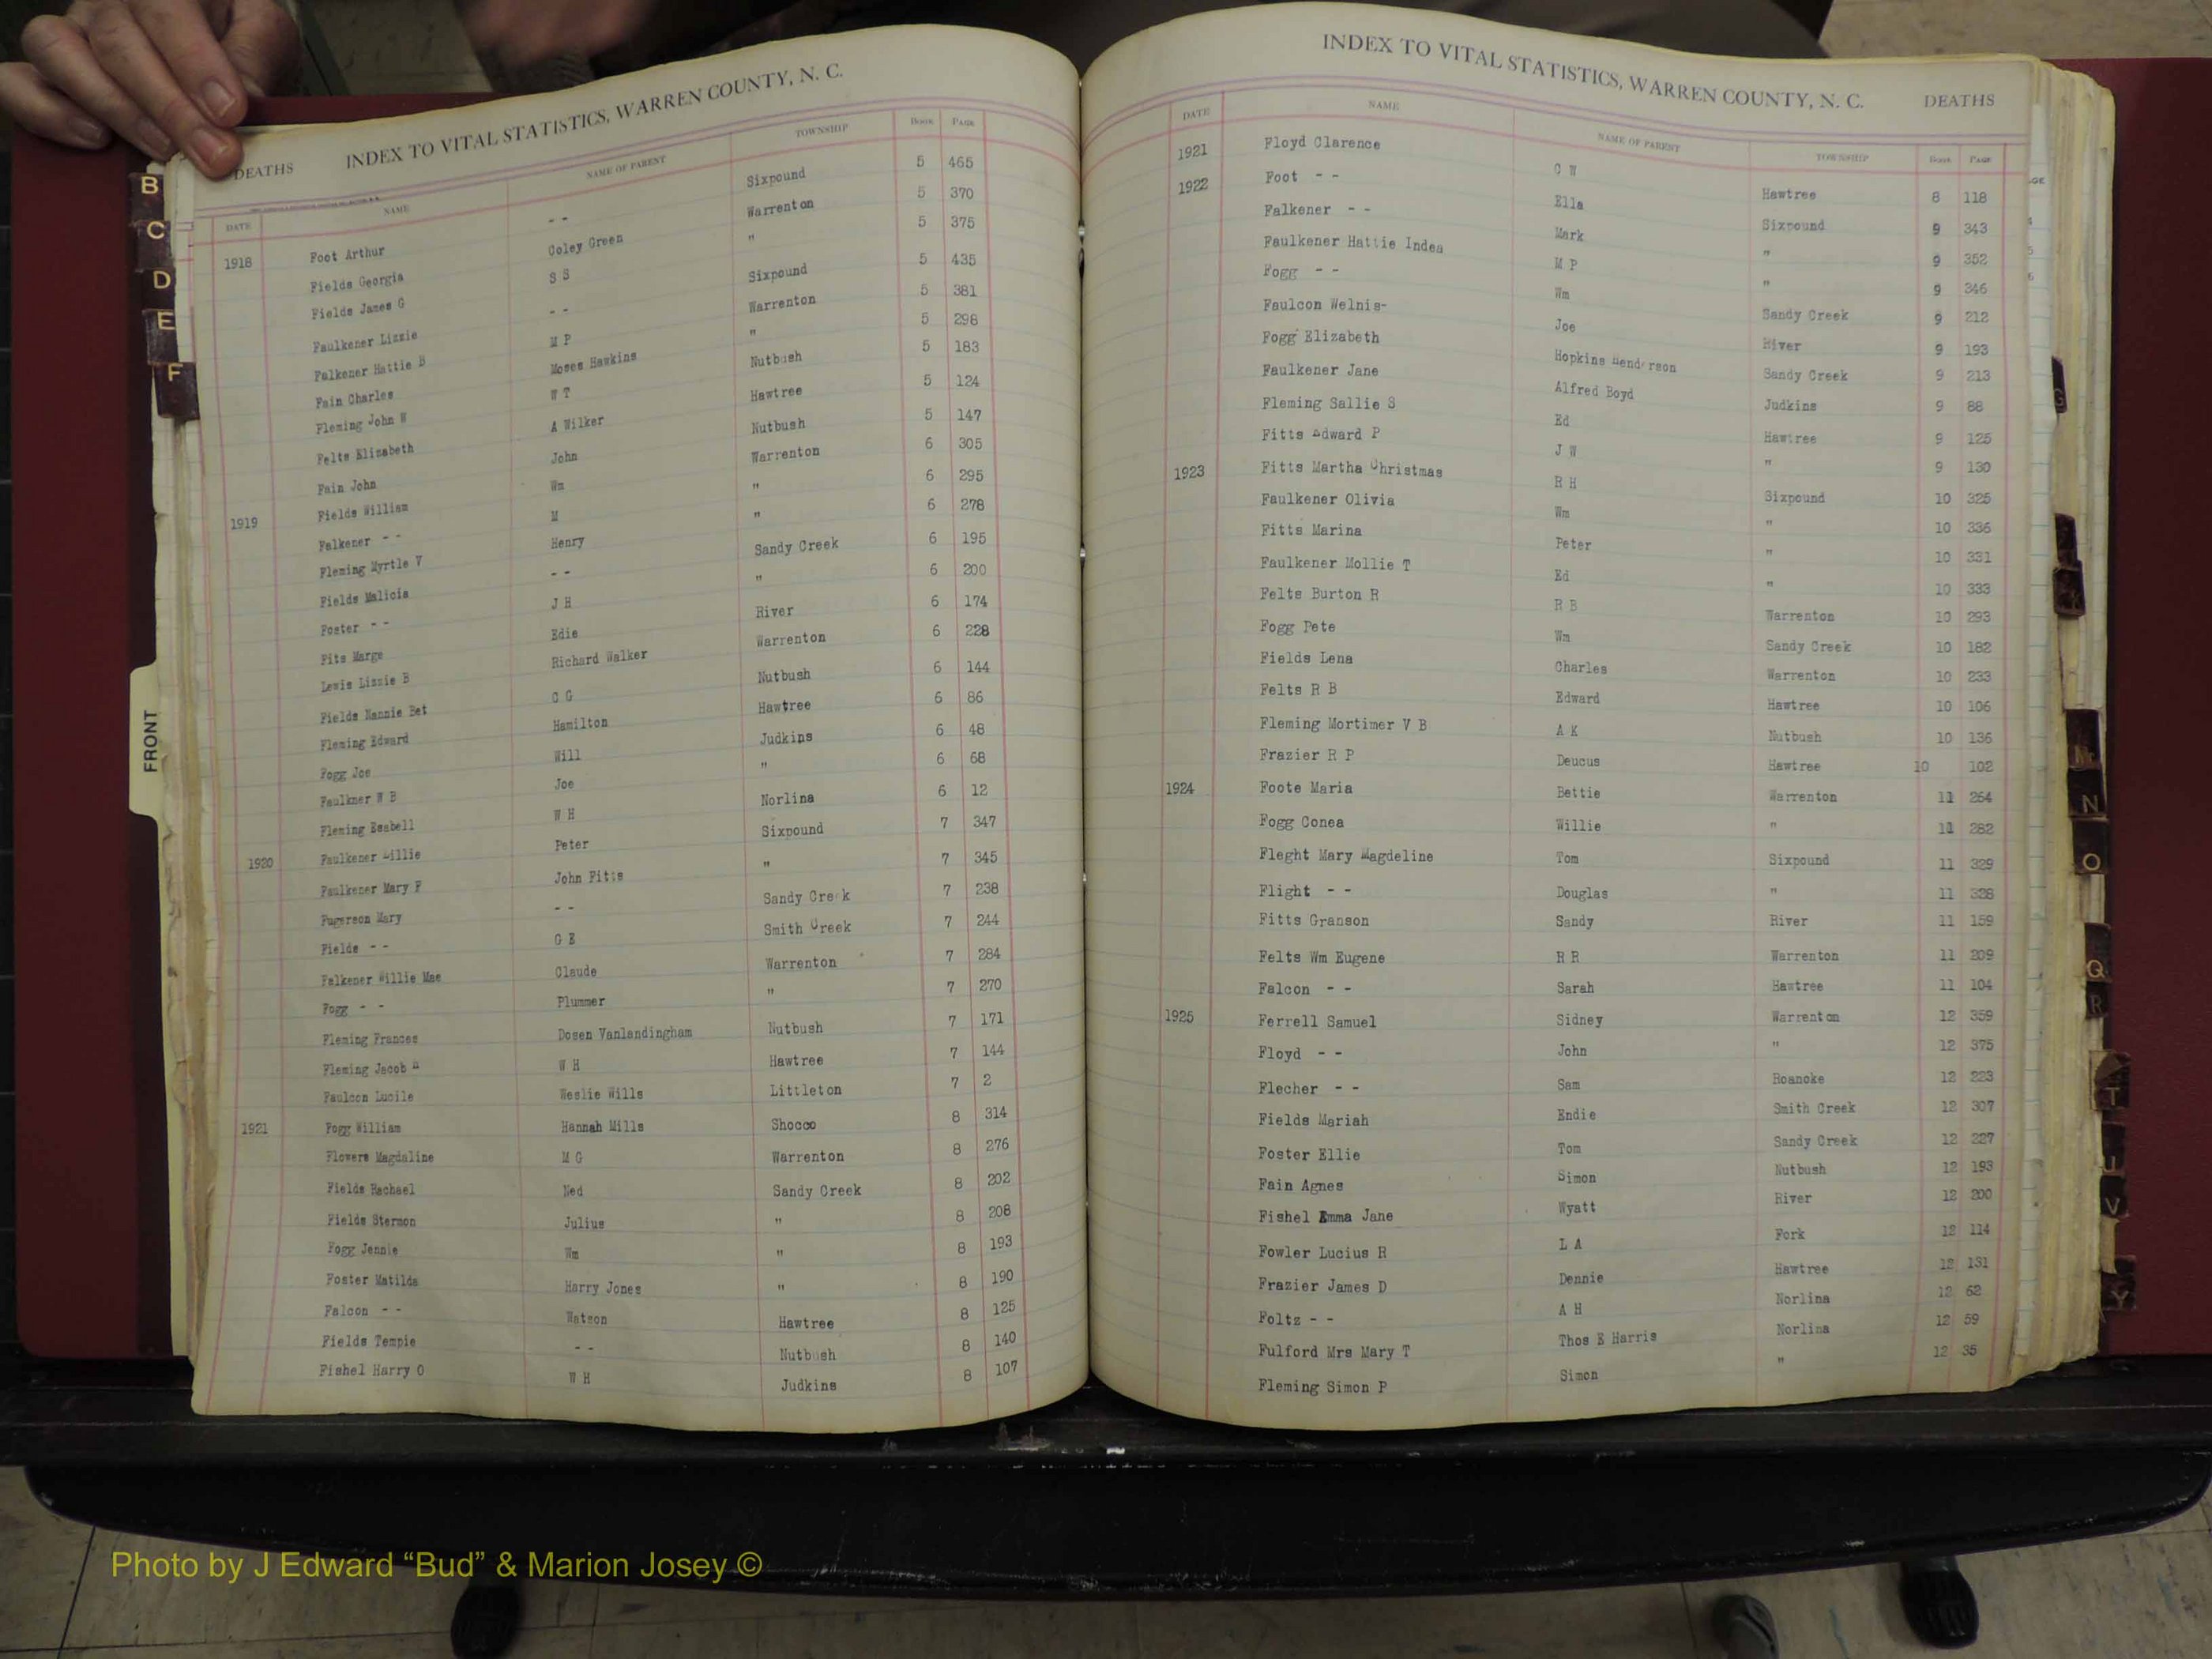 DEATHS INDEX TO VITAL STATISTICS, WARREN COUNTY, N. C.
DATE NAME NAME OF PARENT TOWNSHIP BOOK PAGE
1918 Foot Arthur - - Sixpound 5 465
Fields Georgia Coley Green Warrenton 5 370
Fields James G S S " 5 375
Faulkener Lizzie - - Sixpound 5 435
Falkener Hattie B M P Warrenton 5 381
Fain Charles Moses Hawkins " 5 298
Fleming John W W T Nutbush 5 183
Felts Elizabeth A Wilker Hawtree 5 124
Fain John John Nutbush 5 147
1919 Fields William Wm Warrenton 6 305
Falkener - - M " 6 295
Fleming Myrtle V Henry " 6 278
Fields Malicia - - Sandy Creek 6 195
Foster - - J H " 6 200
Fits Marge Edie River 6 174
Lewis Lizzie B Richard Walker Warrenton 6 228
Fields Nannie Bet C G Nutbush 6 144
Fleming Edward Hamilton Hawtree 6 86
Fogg Joe Will Judkins 6 48
Faulkner W B Joe " 6 68
Fleming Esabell W H Norlina 6 12
1920 Faulkener Lillie Peter Sixpound 7 347
Faulkener Mary F John Fitts " 7 345
Fugerson Mary - - Sandy Creek 7 238
Fields - - G E Smith Creek 7 244
Falkener Willie Mae Claude Warrenton 7 284
Fogg - - Plummer " 7 270
Fleming Frances Dosen Vanlandingham Nutbush 7 171
Fleming Jacob H W H Hawtree 7 144
Faulcon Lucile Weslie Wills Littleton 7 2
1921 Fogg William Hannah Mills Shocco 8 314
Flowers Magdaline M G Warrenton 8 276
Fields Rachael Ned Sandy Creek 8 202
Fields Stermon Julius " 8 208
Fogg Jennie Wm " 8 193
Foster Matilda Harry Jones " 8 190
Falcon - - Watson Hawtree 8 125
Fields Tempie - - Nutbush 8 140
Fishel Harry O W H Judkins 8 107
INDEX TO VITAL STATISTICS, WARREN COUNTY, N. C. DEATHS
DATE NAME NAME OF PARENT TOWNSHIP BOOK PAGE
1921 Floyd Clarence C W Hawtree 8 118
1922 Foot - - Ella Sixpound 9 343
Falkener - - Mark " 9 352
Faulkener Hattie Indea M P " 9 346
Fogg - - Wm Sandy Creek 9 212
Faulcon Welnis- Joe River 9 193
Fogg Elizabeth Hopkins Henderson Sandy Creek 9 213
Faulkener Jane Alfred Boyd Judkins 9 88
Fleming Sallie S Ed Hawtree 9 125
Fitts Edward P J W " 9 130
1923 Fitts Martha Christmas R H Sixpound 10 325
Faulkener Olivia Wm " 10 336
Fitts Marina Peter " 10 331
Faulkener Mollie T Ed " 10 333
Felts Burton R R B Warrenton 10 293
Fogg Pete Wm Sandy Creek 10 182
Fields Lena Charles Warrenton 10 233
Felts R B Edward Hawtree 10 106
Fleming Mortimer V B A K Nutbush 10 136
Frazier R P Deucus Hawtree 10 102
1924 Foote Maria Bettie Warrenton 11 264
Fogg Conea Willie " 11 282
Fleght Mary Magdeline Tom Sixpound 11 329
Flight - - Douglas " 11 328
Fitts Granson Sandy River 11 159
Felts Wm Eugene R R Warrenton 11 209
Falcon - - Sarah Hawtree 11 104
1925 Ferrell Samuel Sidney Warrenton 12 359
Floyd - - John " 12 375
Flecher - - Sam Roanoke 12 223
Fields Mariah Endie Smith Creek 12 307
Foster Ellie Tom Sandy Creek 12 227
Fain Agnes Simon Nutbush 12 193
Fishel Emma Jane Wyatt River 12 200
Fowler Lucius R L A Fork 12 114
Frazier James D Dennie Hawtree 12 131
Foltz - - A H Norlina 12 62
Fulford Mrs Mary T Thos E Harris Norlina 12 59
Fleming Simon P Simon " 12 35
B
C
D
E
F
FRONT
G
N
O
Q
R
T
V
Y
Photo by J Edward “Bud” & Marion Josey ©